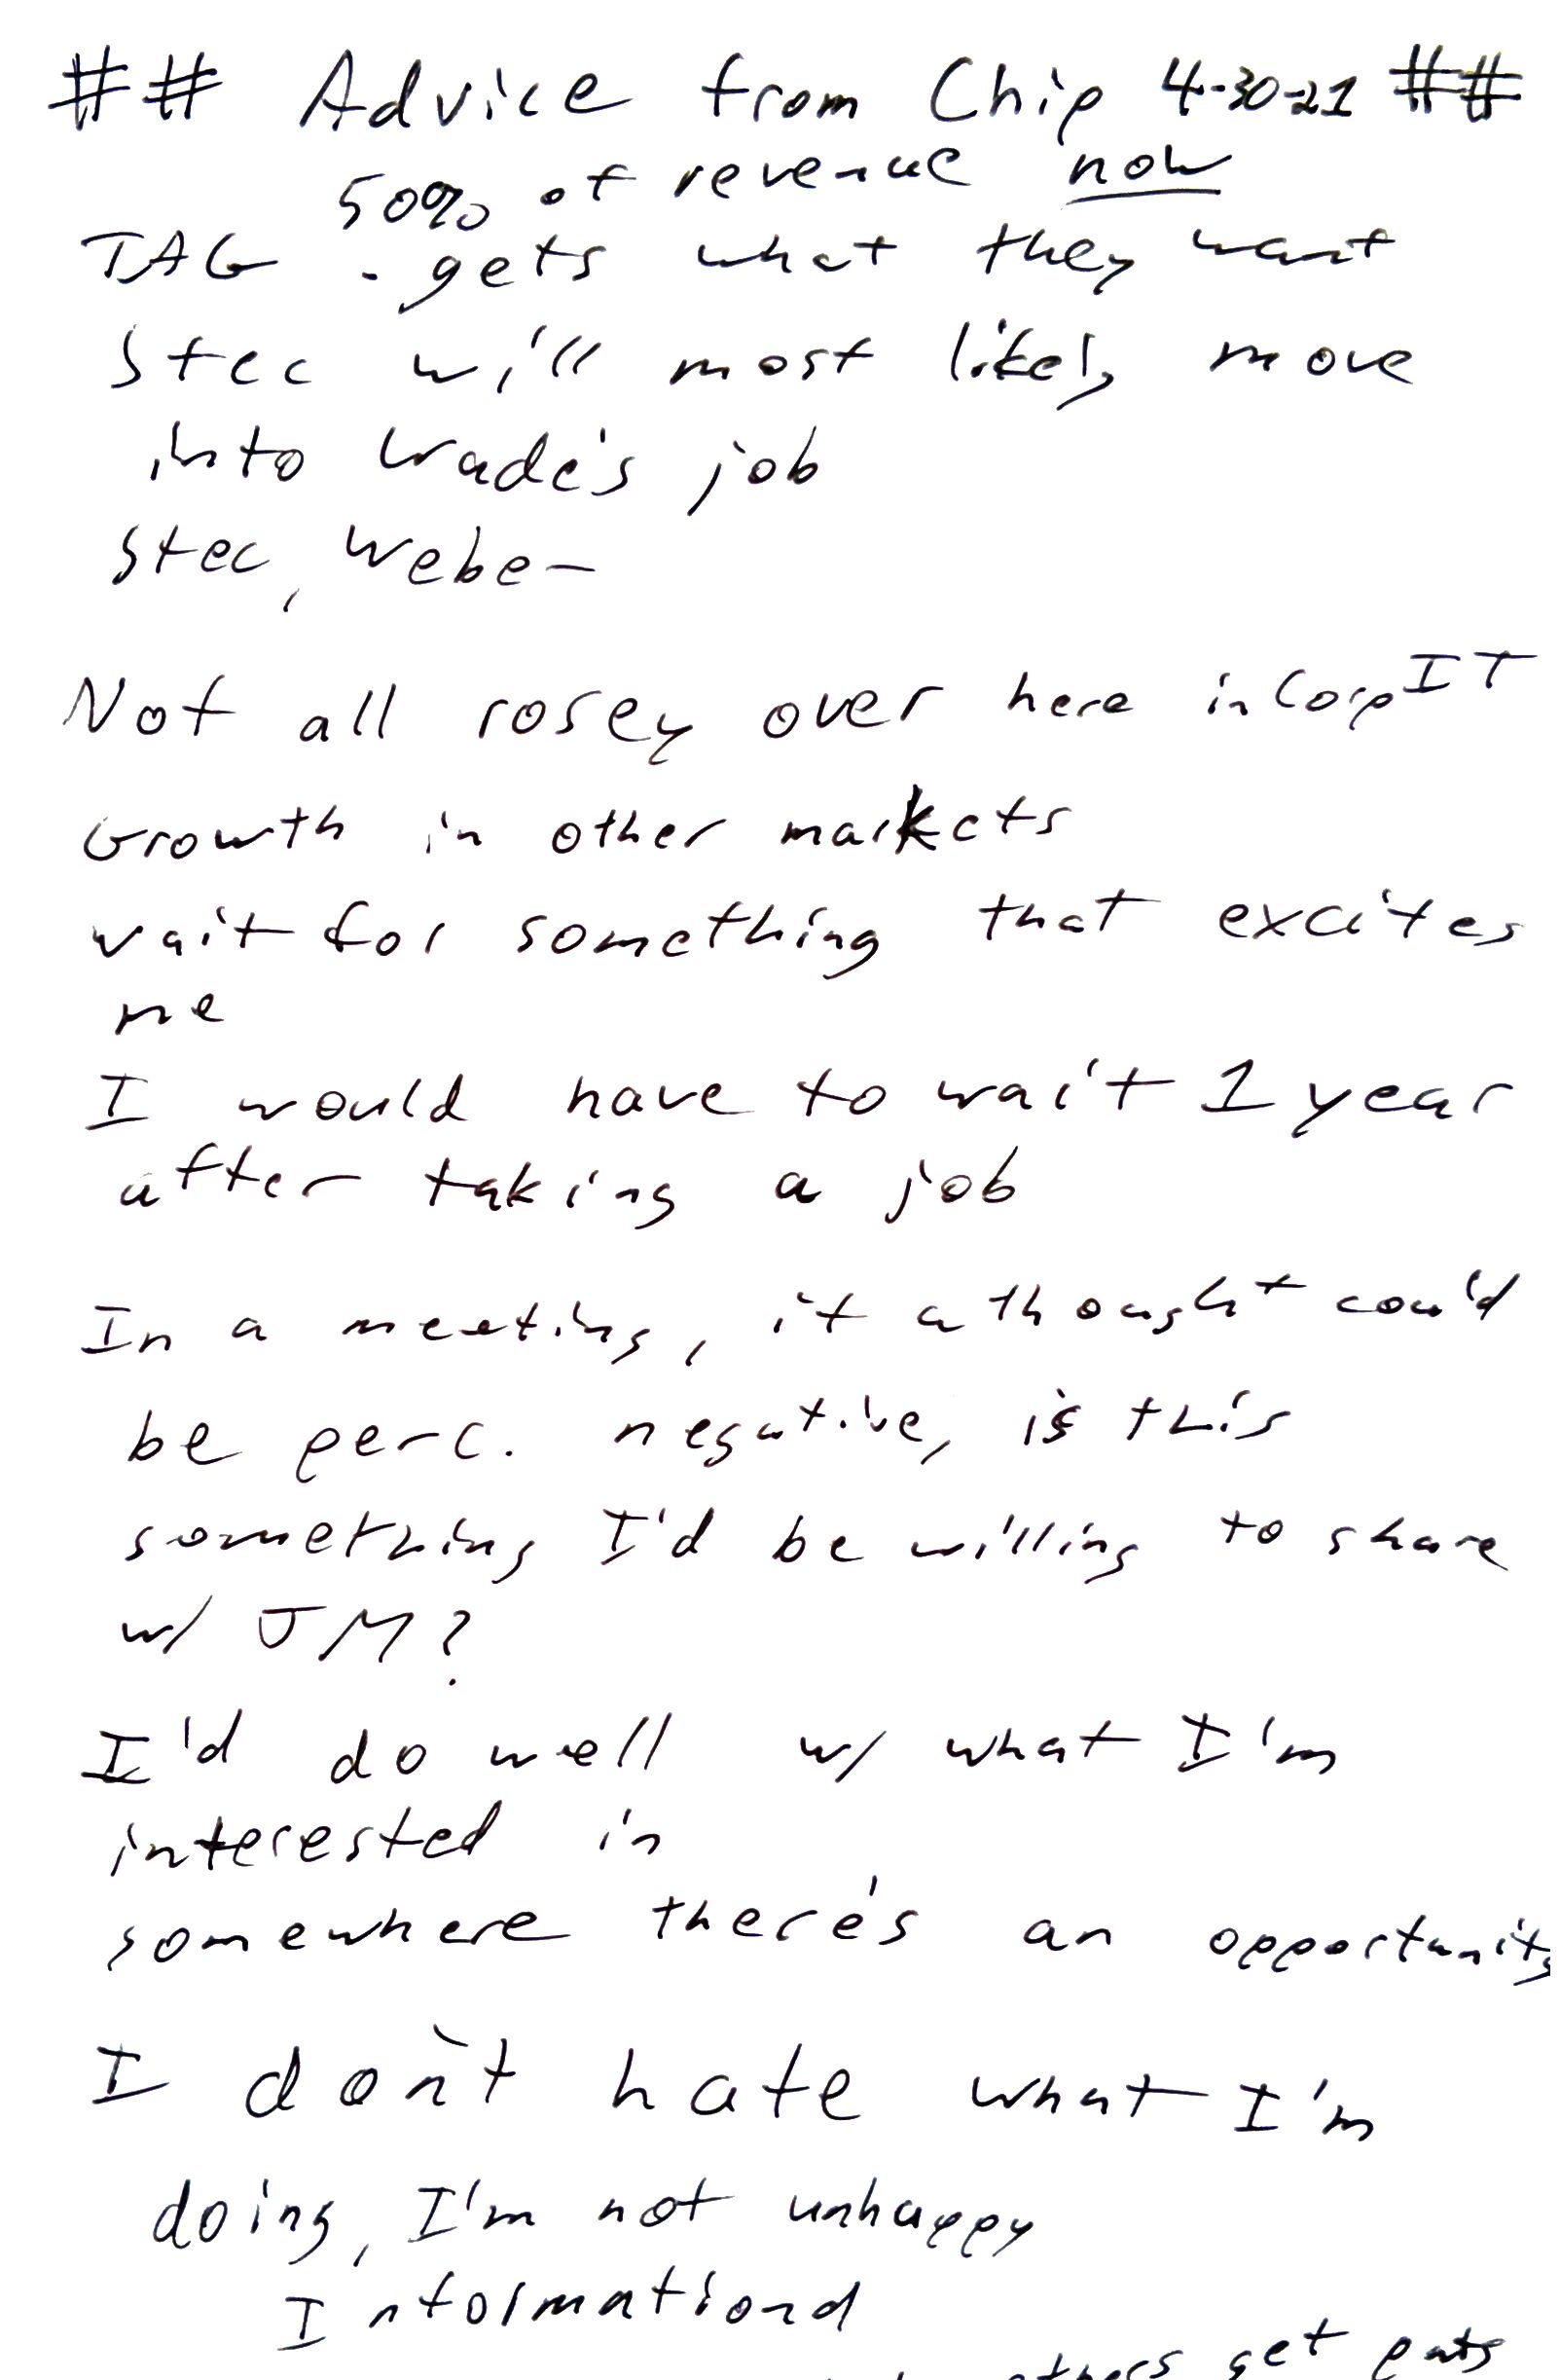 ## Advice from Chip 4-30-21 ##
50% of revenue now
TAG - gets what they want
Stec will most likely move
into Wade's job
Stec, Weber
Not all rosey over here in Corp IT
Growth in other markets
wait for something that excites
me
I would have to wait 1 year
after taking a job
In a meeting, if a thought could
be perc. negative, is this
something I'd be willing to share
w/ JM?
I'd do well w/ what I'm
interested in
somewhere there's an opportunity
I don't hate what I'm
doing, I'm not unhappy
Informationd
others get